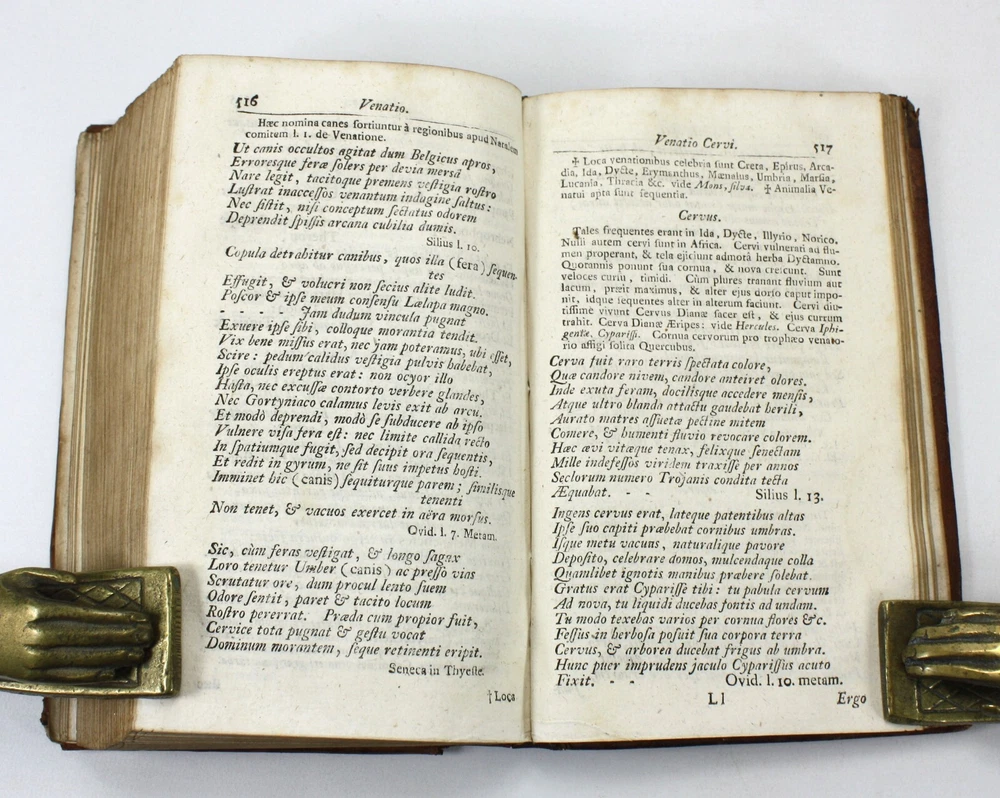 516 Venatio.
Hæc nomina canes sortiuntur à regionibus apud Natalem
comitem l. 1. de Venatione.
Ut canis occultos agitat dum Belgicus apros,
Erroresque feræ solers per devia mersâ
Nare legit, tacitoque premens vestigia rostro
Lustrat inaccessos venantum indagine saltus:
Nec sistit, nisi conceptum sectatus odorem
Deprendit spissis arcana cubilia dumis.
Silius l. 10.
Copula detrahitur canibus, quos illa (fera) sequen-
tes
Effugit, & volucri non secius alite ludit.
Poscor & ipse meum consensu Lælapa magno.
- - - - Jam dudum vincula pugnat
Exuere ipse sibi, colloque morantia tendit.
Vix bene missus erat, nec jam poteramus, ubi esset,
Scire: pedum calidus vestigia pulvis habebat,
Ipse oculis ereptus erat: non ocyor illo
Hasta, nec excussæ contorto verbere glandes,
Nec Gortyniaco calamus levis exit ab arcu.
Et modò deprendi, modò se subducere ab ipso
Vulnere visa fera est: nec limite callida recto
In spatiumque fugit, sed decipit ora sequentis,
Et redit in gyrum, ne sit suus impetus hosti.
Imminet hic (canis) sequiturque parem; similisque
tenenti
Non tenet, & vacuos exercet in aëra morsus.
Ovid. l. 7. Metam.
Sic, cùm feras vestigat, & longo sagax
Loro tenetur Umber (canis) ac presso vias
Scrutatur ore, dum procul lento suem
Odore sentit, paret & tacito locum
Rostro pererrat. Præda cum propior fuit,
Cervice tota pugnat & gestu vocat
Dominum morantem, seque retinenti eripit.
Seneca in Thyeste.
† Loca
Venatio Cervi. 517
‡ Loca venationibus celebria sunt Creta, Epirus, Arca-
dia, Ida, Dycte, Erymanthus, Mænalus, Umbria, Marsia,
Lucania, Thracia &c. vide Mons, silva. ‡ Animalia Ve-
natui apta sunt sequentia.
Cervus.
Tales frequentes erant in Ida, Dycte, Illyrio, Norico.
Nulli autem cervi sunt in Africa. Cervi vulnerati ad flu-
men properant, & tela ejiciunt admotâ herba Dyctamno.
Quotannis ponunt sua cornua, & nova crescunt. Sunt
veloces cursu, timidi. Cùm plures tranant fluvium aut
lacum, præit maximus, & alter ejus dorso caput impo-
nit, idque sequentes alter in alterum faciunt. Cervi diu-
tissime vivunt Cervus Dianæ sacer est, & ejus currum
trahit. Cerva Dianæ Æripes: vide Hercules. Cerva Iphi-
geniæ, Cyparissi. Cornua cervorum pro trophæo venato-
rio affigi solita Quercubus.
Cerva fuit raro terris spectata colore,
Quæ candore nivem, candore anteiret olores.
Inde exuta feram, docilisque accedere mensis,
Atque ultro blanda attactu gaudebat herili,
Aurato matres assuetæ pectine mitem
Comere, & humenti fluvio revocare colorem.
Hæc ævi vitæque tenax, felixque senectam
Mille indefessos viridem traxisse per annos
Seclorum numero Trojanis condita tecta
Æquabat. - - Silius l. 13.
Ingens cervus erat, lateque patentibus altas
Ipse suo capiti præbebat cornibus umbras.
Isque metu vacuus, naturalique pavore
Deposito, celebrare domos, mulcendaque colla
Quamlibet ignotis manibus præbere solebat.
Gratus erat Cyparisse tibi: tu pabula cervum
Ad nova, tu liquidi ducebas fontis ad undam.
Tu modo texebas varios per cornua flores &c.
Fessus in herbosa posuit sua corpora terra
Cervus, & arborea ducebat frigus ab umbra.
Hunc puer imprudens jaculo Cyparissus acuto
Fixit. - - Ovid. l. 10. metam.
Ll Ergo